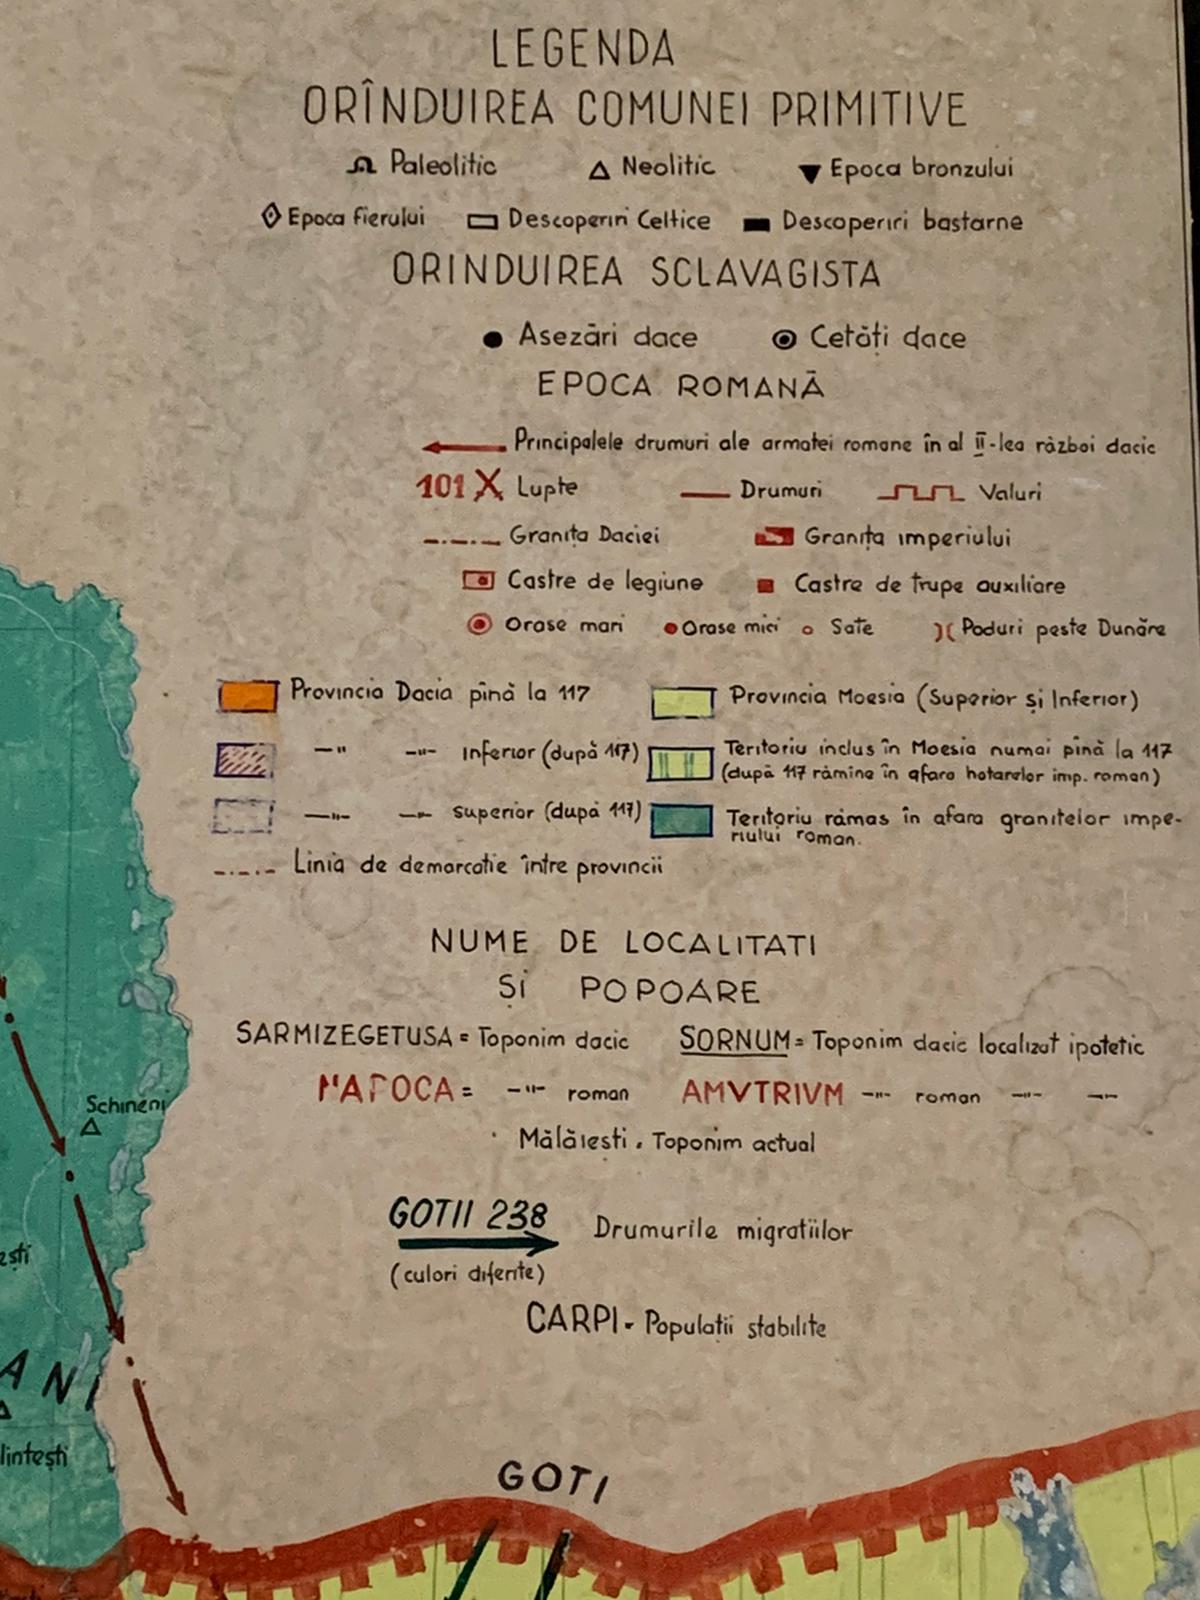 LEGENDA
ORÎNDUIREA COMUNEI PRIMITIVE
Paleolitic Neolitic Epoca bronzului
Epoca fierului Descoperiri Celtice Descoperiri bastarne
ORINDUIREA SCLAVAGISTA
Asezări dace Cetăți dace
EPOCA ROMANĂ
Principalele drumuri ale armatei romane în al II-lea război dacic
101 X Lupte Drumuri Valuri
Granița Daciei Granița imperiului
Castre de legiune Castre de trupe auxiliare
Orase mari Orase mici Sate Poduri peste Dunăre
Provincia Dacia pînă la 117 Provincia Moesia (Superior și Inferior)
—"— —"— Inferior (după 117) Teritoriu inclus în Moesia numai pînă la 117
(după 117 rămîne în afara hotarelor imp. roman)
—"— —"— superior (după 117) Teritoriu rămas în afara granitelor impe-
riului roman.
Linia de demarcatie între provincii
NUME DE LOCALITATI
ȘI POPOARE
SARMIZEGETUSA = Toponim dacic SORNUM = Toponim dacic localizat ipotetic
NAPOCA = —"— roman AMVTRIVM —"— roman —"— —"—
Mălăiesti . Toponim actual
Schineni
GOTII 238 Drumurile migratiilor
(culori diferite)
CARPI - Populatii stabilite
ești
ANI
lintești
GOTI